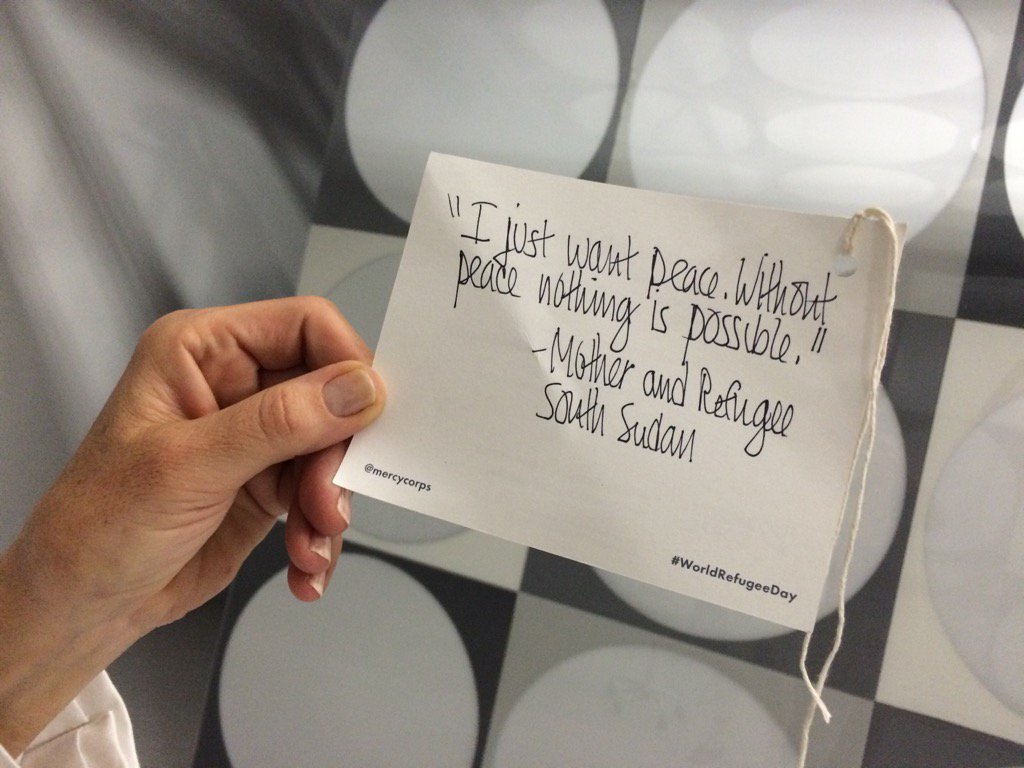 "I just want peace. Without
peace nothing is possible."
- Mother and Refugee
South Sudan
@mercycorps
#WorldRefugeeDay